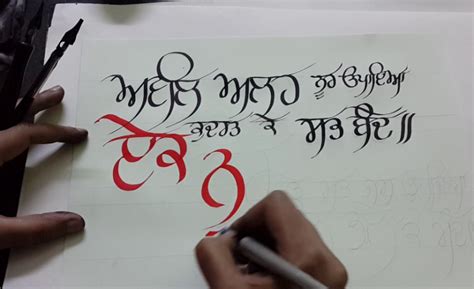 ਅਵਲਿ ਅਲਹ ਨੂਰ ਉਪਾਇਆ
ਕੁਦਰਤ ਕੇ ਸਭ ਬੰਦੇ॥
ਏਕ ਨੂ